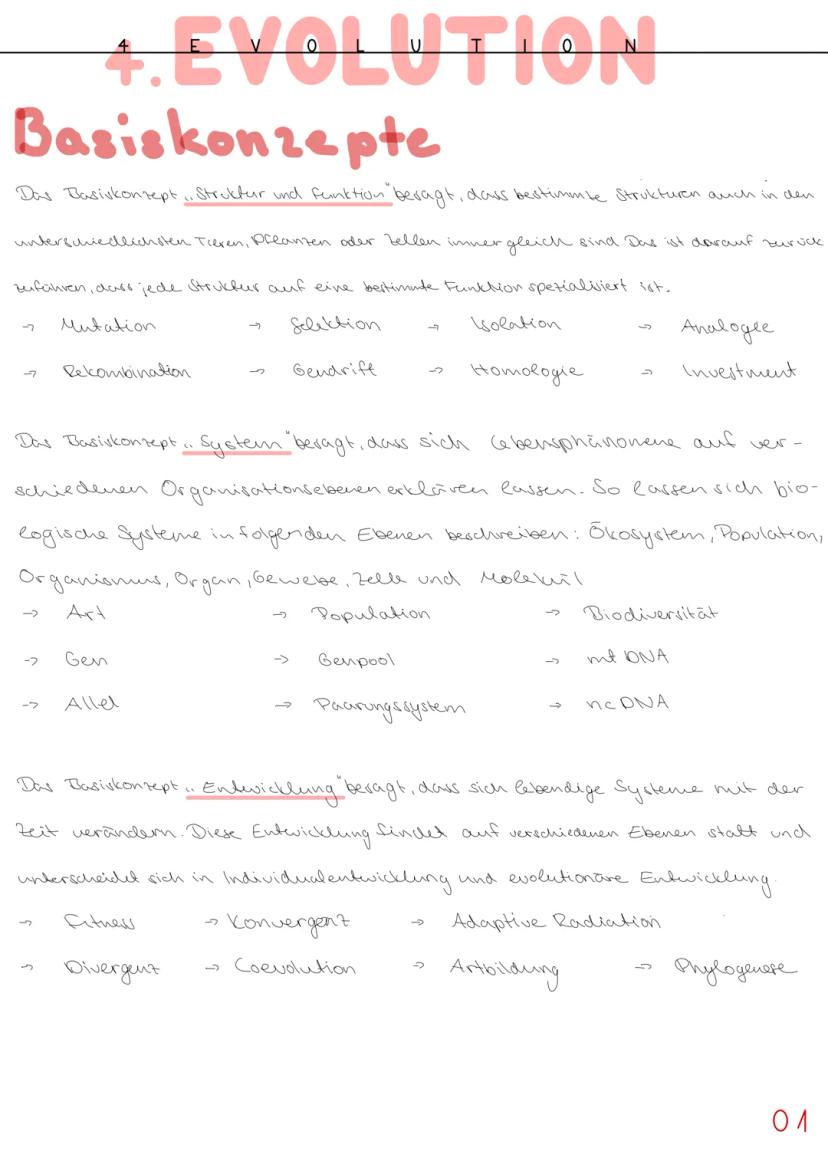 4 EVOLUTION
4. EVOLUTION
Basiskonzepte
Das Basiskonzept „Struktur und Funktion" besagt, dass bestimmte Strukturen auch in den
unterschiedlichsten Tieren, Pflanzen oder Zellen immer gleich sind. Das ist darauf zurück
zuführen, dass jede Struktur auf eine bestimmte Funktion spezialisiert ist.
→ Mutation → Selektion → Isolation → Analogie
→ Rekombination → Gendrift → Homologie → Investment
Das Basiskonzept „System" besagt, dass sich Lebensphänonene auf ver-
schiedenen Organisationsebenen erklären lassen. So lassen sich bio-
logische Systeme in folgenden Ebenen beschreiben: Ökosystem, Population,
Organismus, Organ, Gewebe, Zelle und Molekül
→ Art → Population → Biodiversität
→ Gen → Genpool → mt DNA
→ Allel → Paarungssystem → nc DNA
Das Basiskonzept „Entwicklung" besagt, dass sich lebendige Systeme mit der
Zeit verändern. Diese Entwicklung findet auf verschiedenen Ebenen statt und
unterscheidet sich in Individualentwicklung und evolutionäre Entwicklung.
→ Fitness → Konvergenz → Adaptive Radiation
→ Divergenz → Coevolution → Artbildung → Phylogenese
01